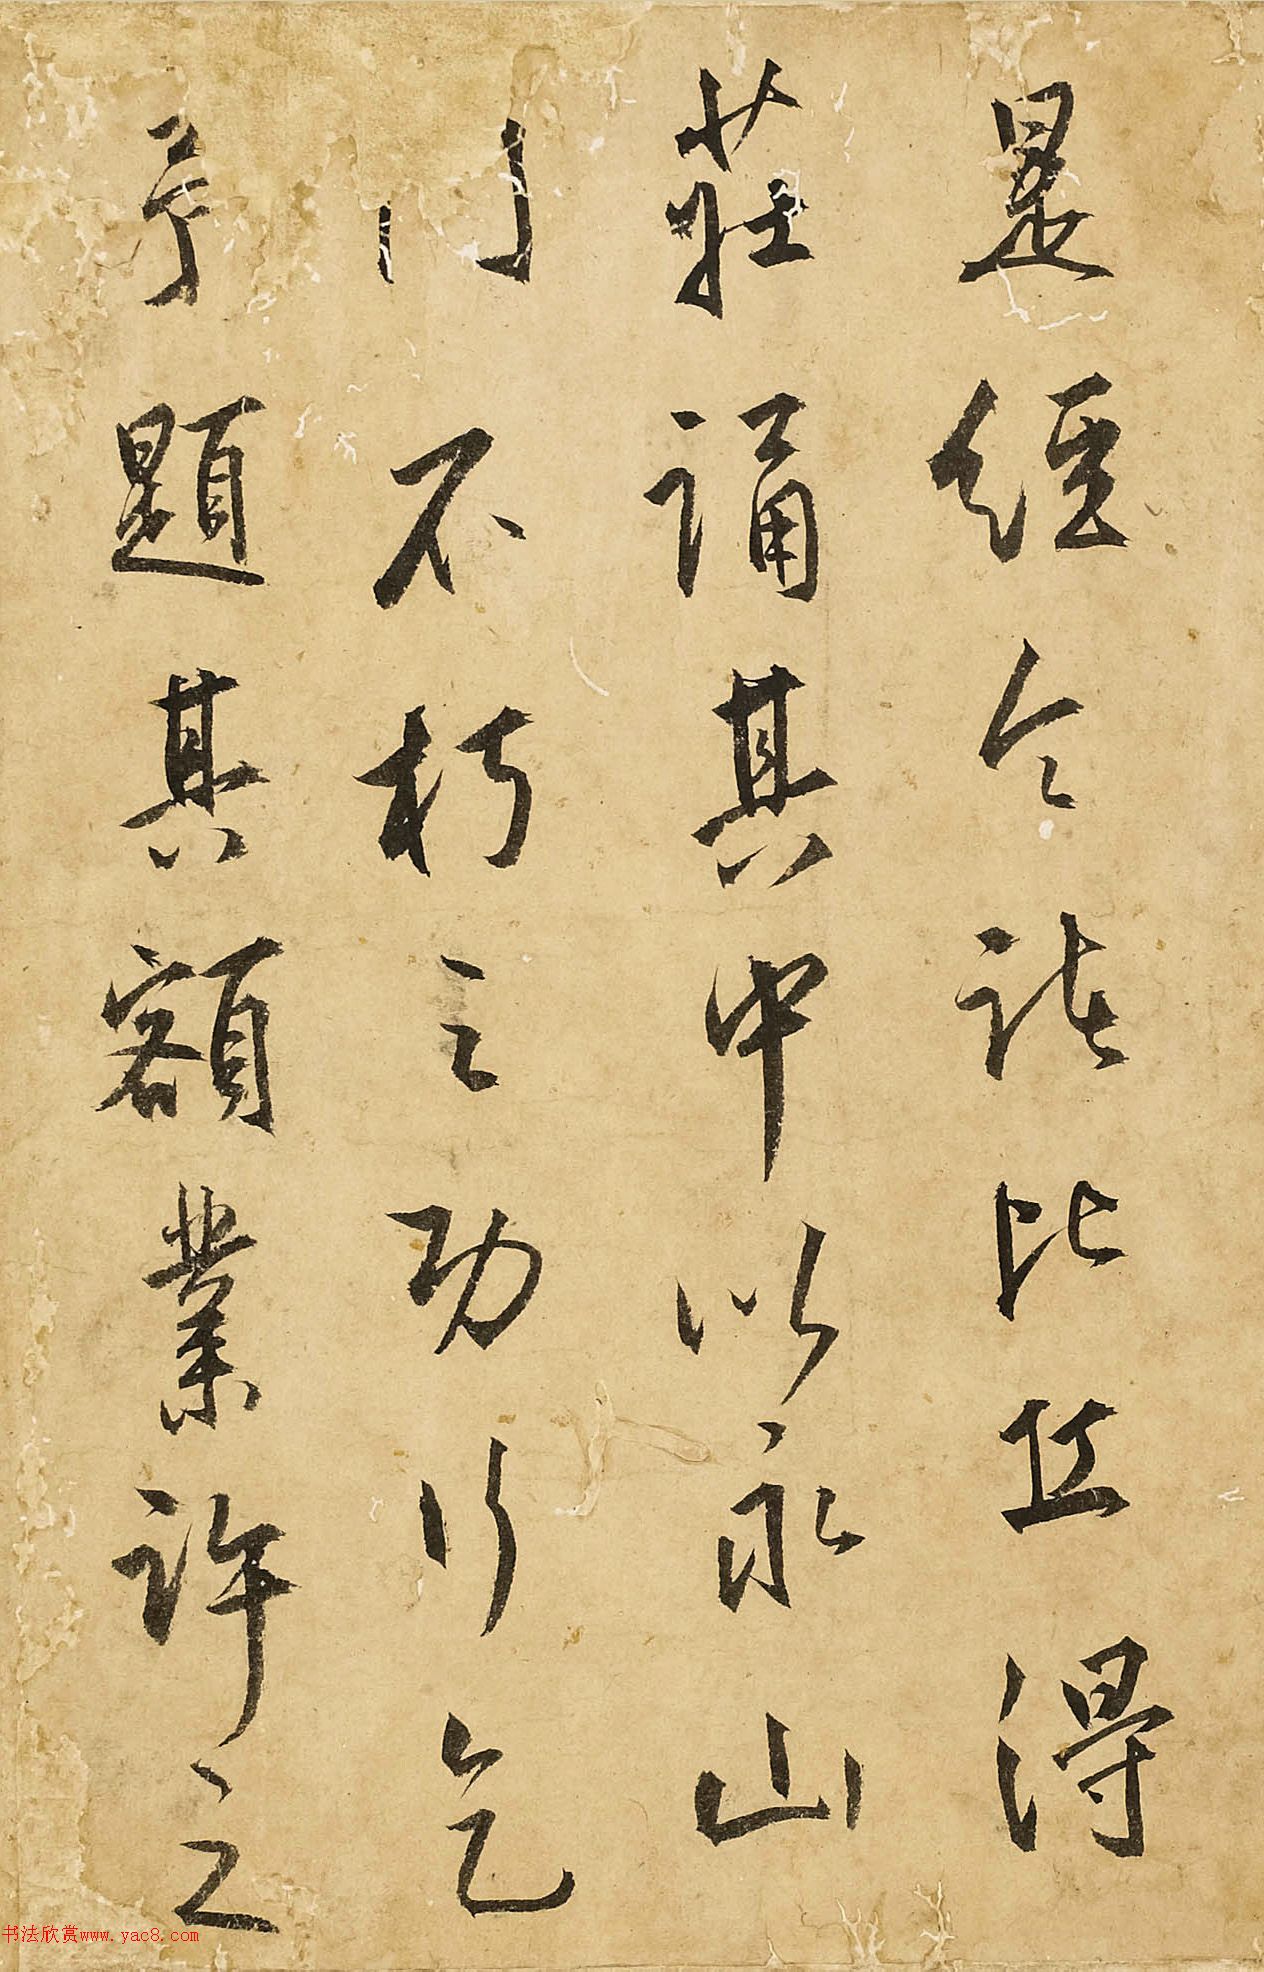 是經令諸比丘得
莊誦其中以永山
门不朽之功行乞
予題其額業許之
书法欣赏www.yac8.com